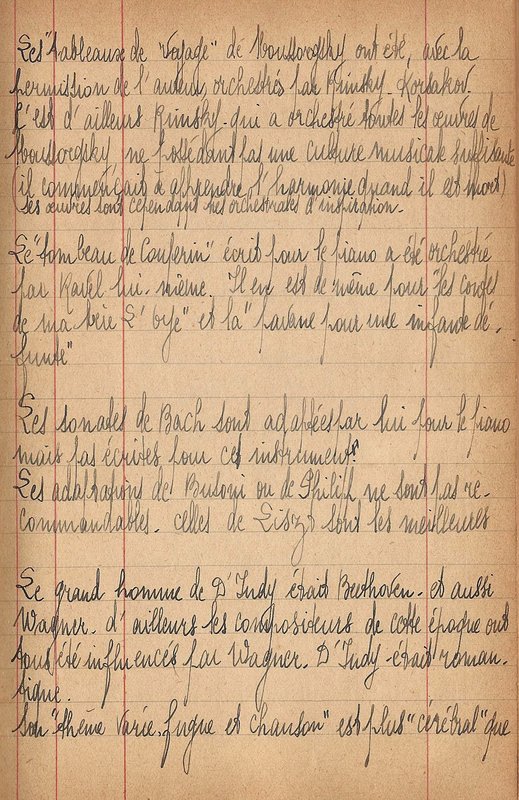 Les "tableaux de "voyage" de Moussorgsky ont été, avec la
permission de l'auteur, orchestrés par Rimsky-Korsakov.
C'est d'ailleurs Rimsky qui a orchestré toutes les œuvres de
Moussorgsky ne possédant pas une culture musicale suffisante
(il commençait à apprendre l'harmonie quand il est mort)
Ses œuvres sont cependant très orchestrales d'inspiration.
Le "tombeau de Couperin" écrit pour le piano a été orchestré
par Ravel lui-même. Il en est de même pour "les contes
de ma mère L'oye" et la "pavane pour une infante dé-
funte"
Les sonates de Bach sont adaptées par lui pour le piano
mais pas écrites pour cet instrument.
Les adaptations de Busoni ou de Philip ne sont pas re-
commandables. celles de Liszt sont les meilleures
Le grand homme de D'Indy était Beethoven - et aussi
Wagner - d'ailleurs les compositeurs de cette époque ont
tous été influencés par Wagner. D'Indy était roman-
tique.
Son "thème varié, fugue et chanson" est plus "cérébral" que